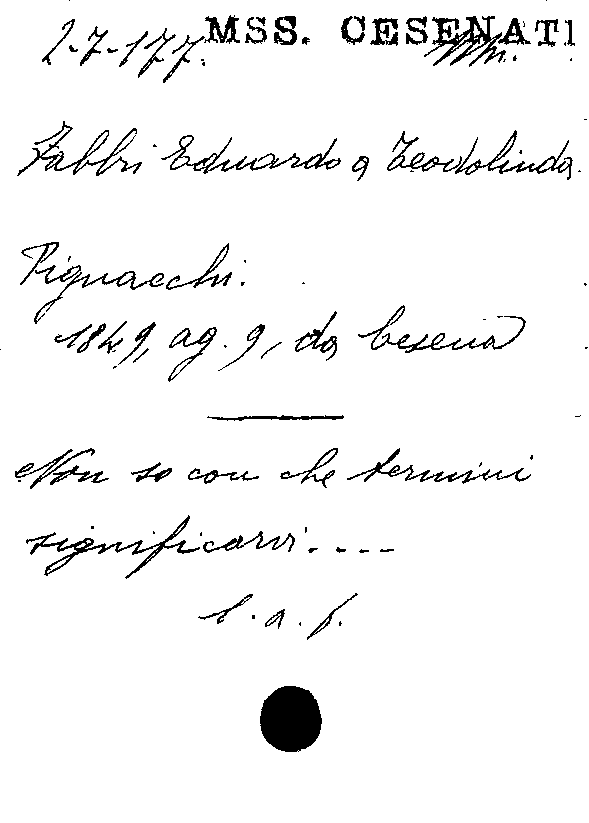 MSS. CESENATI
2-7-177.
Fabbri Eduardo a Teodolinda
Pignacchi.
1849, ag. 9, da Cesena
Non so con che termini
significarvi....
l. a. f.